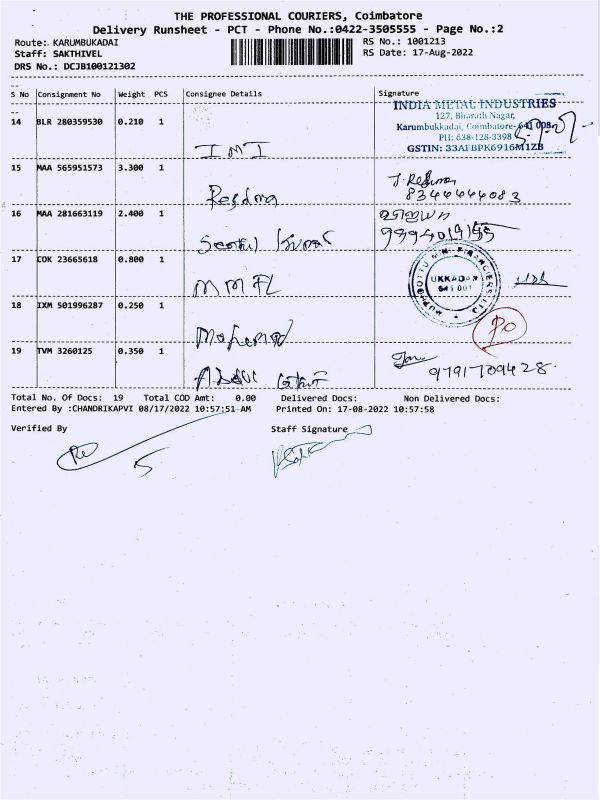 THE PROFESSIONAL COURIERS, Coimbatore
Delivery Runsheet - PCT - Phone No.:0422-3505555 - Page No.:2
Route: KARUMBUKADAI
RS No.: 1001213
Staff: SAKTHIVEL
RS Date: 17-Aug-2022
DRS No.: DCJB100121302
S No Consignment No Weight PCS Consignee Details Signature
14 BLR 280359530 0.210 1
IMI
INDIA METAL INDUSTRIES
127, Bharath Nagar,
Karumbukkadai, Coimbatore-641 008.
PH: 638-128-3398
GSTIN: 33AFBPK6916M1ZB
15 MAA 565951573 3.300 1
Reshma
J. Reshma
8344444083
16 MAA 281663119 2.400 1
Senthil Kumar
17 COK 23665618 0.800 1
MMFL
MUTHOOTTU MINI FINANCIERS LTD
UKKADAM
641 001
18 IXM 501996287 0.250 1
Mohamad
PO
19 TVM 3260125 0.350 1
Abdul
9791709428
Total No. Of Docs: 19 Total COD Amt: 0.00 Delivered Docs: Non Delivered Docs:
Entered By :CHANDRIKAPVI 08/17/2022 10:57:51 AM Printed On: 17-08-2022 10:57:58
Verified By Staff Signature